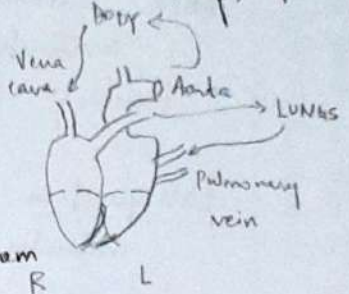 Body
Vena
cava
Aorta
LUNGS
Pulmonary
vein
R L